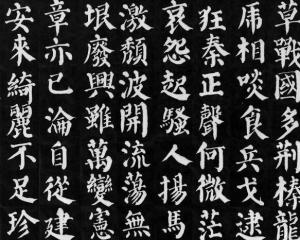 草戰國多荊榛龍
虎相啖食兵戈逮
狂秦正聲何微茫
哀怨起騷人揚馬
激頹波開流蕩無
垠廢興雖萬變憲
章亦已淪自從建
安來綺麗不足珍